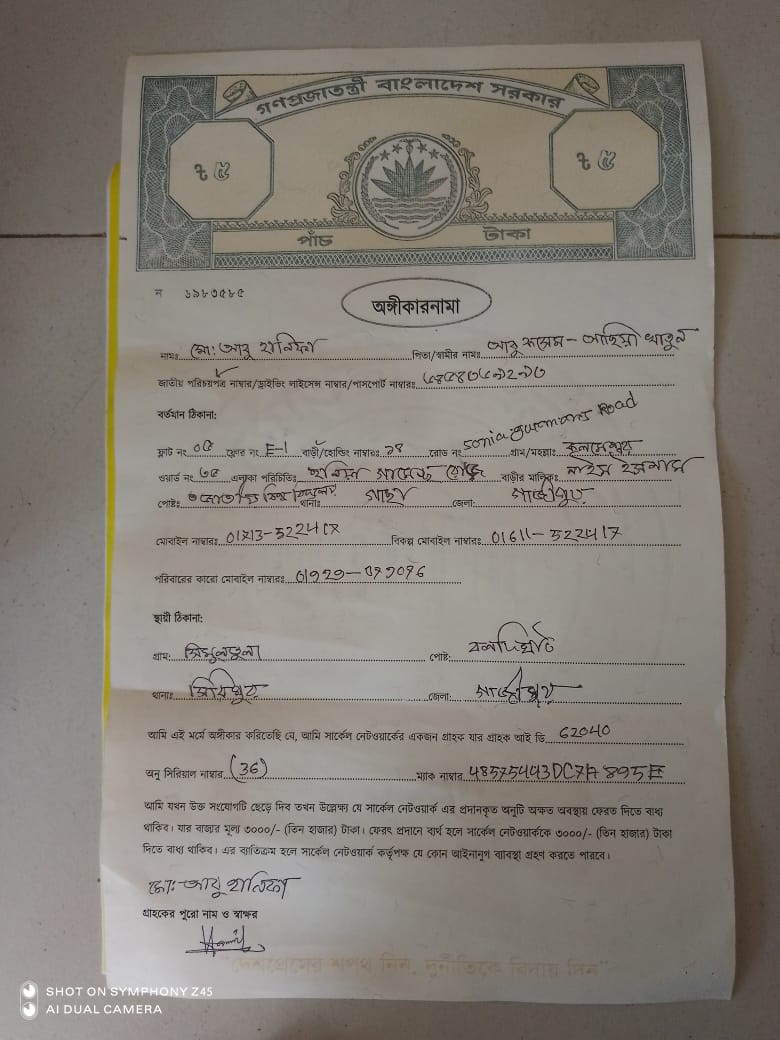 গণপ্রজাতন্ত্রী বাংলাদেশ সরকার
৳ ৫ ৳ ৫
পাঁচ টাকা
ন ৬৯৮৩৫৮৫
অঙ্গীকারনামা
নামঃ মো: আবু হানিফা পিতা/স্বামীর নামঃ আবু কাসেম - আছিয়া খাতুন
জাতীয় পরিচয়পত্র নাম্বার/ড্রাইভিং লাইসেন্স নাম্বার/পাসপোর্ট নাম্বারঃ
বর্তমান ঠিকানা:
ফ্লাট নং ০৫ ফ্লোর নং E-1 বাড়ী/হোল্ডিং নাম্বারঃ ১৪ রোড নং sonia garments Road গ্রাম/মহল্লাঃ কলমেশ্বর
ওয়ার্ড নং ৩৫ এলাকা পরিচিতিঃ বাড়ীর মালিকঃ ইসলাম
পোষ্টঃ থানাঃ গাছা জেলা: গাজীপুর
মোবাইল নাম্বারঃ 01713-522417 বিকল্প মোবাইল নাম্বারঃ 01611-522417
পরিবারের কারো মোবাইল নাম্বারঃ
স্থায়ী ঠিকানা:
গ্রাম: সিমুলতুলা পোষ্ট: বলদিঘাট
থানাঃ শ্রিপুর জেলা: গাজীপুর
আমি এই মর্মে অঙ্গীকার করিতেছি যে, আমি সার্কেল নেটওয়ার্কের একজন গ্রাহক যার গ্রাহক আই ডি 62040
অনু সিরিয়াল নাম্বার (36) ম্যাক নাম্বার 48575443DC7A895E
আমি যখন উক্ত সংযোগটি ছেড়ে দিব তখন উল্লেক্ষ্য যে সার্কেল নেটওয়ার্ক এর প্রদানকৃত অনুটি অক্ষত অবস্থায় ফেরত দিতে বাধ্য
থাকিব। যার বাজার মূল্য ৩০০০/- (তিন হাজার) টাকা। ফেরৎ প্রদানে ব্যর্থ হলে সার্কেল নেটওয়ার্ককে ৩০০০/- (তিন হাজার) টাকা
দিতে বাধ্য থাকিব। এর ব্যতিক্রম হলে সার্কেল নেটওয়ার্ক কর্তৃপক্ষ যে কোন আইনানুগ ব্যাবস্থা গ্রহণ করতে পারবে।
মো: আবু হানিফা
গ্রাহকের পুরো নাম ও স্বাক্ষর
"দেশপ্রেমের শপথ নিন, দুর্নীতিকে বিদায় দিন"
SHOT ON SYMPHONY Z45
AI DUAL CAMERA